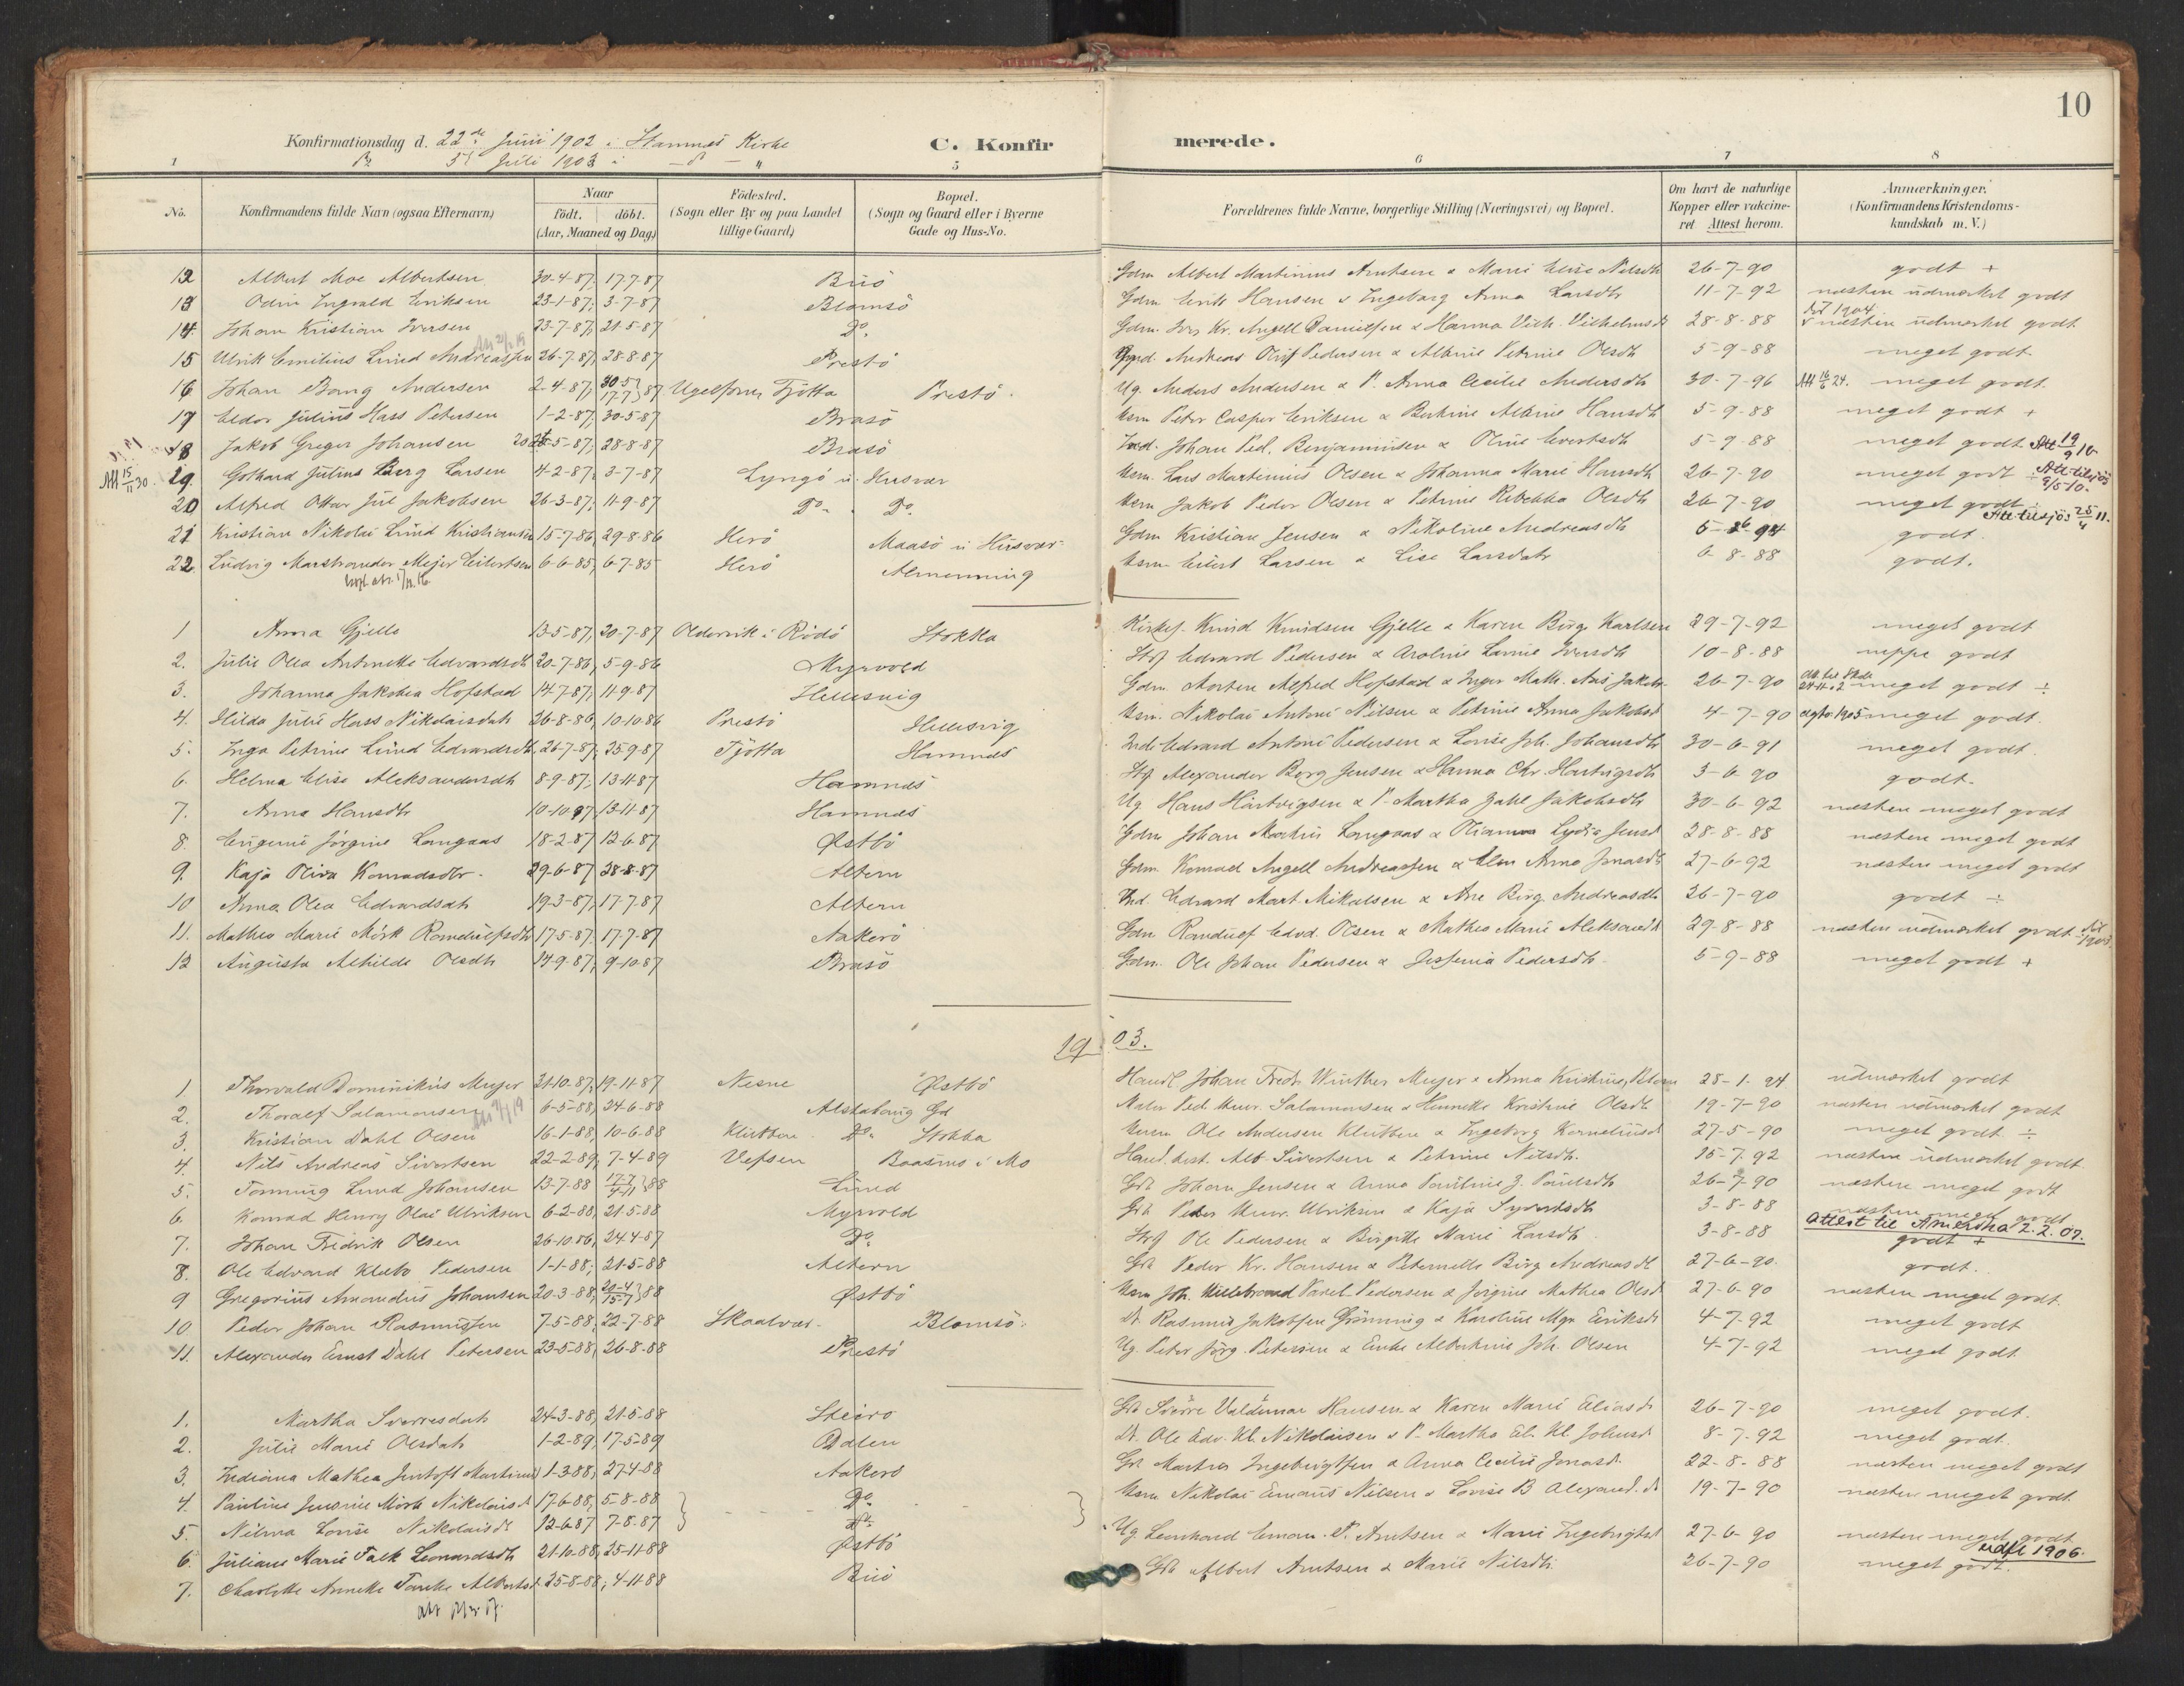 10
Konfirmationsdag d. 22de Juni 1902 i Hamnes Kirke
5te Juli 1903 i — " — "
C. Konfirmerede.
1 5 6 7 8
No. Konfirmandens fulde Navn (ogsaa Efternavn) Naar födt. döbt. (Aar, Maaned og Dag) Födested. (Sogn eller By og paa Landet tillige Gaard) Bopæl. (Sogn og Gaard eller i Byerne Gade og Hus-No. Forældrenes fulde Navne, borgerlige Stilling (Næringsvei) og Bopæl. Om havt de naturlige Kopper eller vakcineret Attest herom. Anmærkninger. (Konfirmandens Kristendomskundskab m. V.)
12 Albert Moe Albertsen 30-4-87, 17-7-87 Buö Gdm Albert Martinius Arntsen & Marie Elise Nilsdtr 26-7-90 godt +
13 Odin Ingvald Eriksen 23-1-87, 3-7-87 Blomsö Gdm. Erik Hansen & Ingeborg Anna Larsdtr 11-7-92 næsten udmærket godt
14. Johan Kristian Iversen 23-7-87, 21-5-87 Do. Gdm. Iver Kr. Angell Danielsen & Hanna Vilh. Vilhelmsd 28-8-88 1904 næsten udmærket godt
15 Ulrik Emilius Lund Andreassen 26-7-87, 28-8-87 Prestö Andreas Pedersen & Albine Petrine Olsdtr 5-9-88 meget godt.
16 Johan Bang Andersen 2-4-87, 30-5 17-7 }87 Tjötta Prestö. Ug. Anders Andersen & P. Anna Cecilie Andersdtr 30-7-96 Att 16/6 24. meget godt.
17 Eldor Julius Hass Petersen 1-2-87, 30-5-87 Brasö Hsm Peter Casper Eriksen & Berthine Albine Hansdtr 5-9-88 meget godt +
18 Jakob Greger Johansen 20-5-87, 28-8-87 Brasö Ind. Johan Ped. Benjaminsen & Oline Evertsdtr 5-9-88 meget godt Att 19/9 10
Att 15/11 30. 19. Gothard Julius Berg Larsen 4-2-87, 3-7-87 Lyngö u. Husvær Hsm. Lars Martinius Olsen & Johanna Marie Hansdtr 26-7-90 meget godt Att til sjös 9/5 10.
20 Alfred Ottar Jul Jakobsen 26-3-87, 11-9-87 Do. Do. Hsm Jakob Peder Olsen & Petrine Rebekka Olsdtr 26-7-90 meget godt
Att til sjös 25/4 11.
21 Kristian Nikolai Lund Kristiansen 15-7-86, 29-8-86 Herö Maasö u Husvær Gdm Kristian Jensen & Nikoline Andreasdtr 5-6-94 godt.
22. Ludvig Marstrander Mejer Eilertsen 6-6-85, 6-7-85 Herö Almenning Hsm Eilert Larsen & Lise Larsdatr 6-8-88 godt.
1 Anna Gjelle 13-5-87, 20-7-87 Oldervik i Rödö Stokka Kirkes. Knud Knudsen Gjelle & Karen Birg. Karlsen 29-7-92 meget godt
2. Julie Olea Antonette Edvardsdtr 20-7-86, 5-9-86 Myrvold Strf Edvard Pedersen & Lovise Iversdtr 10-8-88 neppe godt
3. Johanna Jakobea Hofstad 14-7-87, 11-9-87 Hellesvig Gdm. Morten Alfred Hofstad & Inger Math. Jakobs 26-7-90 meget godt ÷
4. Hilda Julie Hass Nikolaisdatr 26-8-86, 10-10-86 Prestö Hellesvig Hsm. Nikolai Antoni Nilsen & Petrine Anna Jakobsd 4-7-90 1905 meget godt.
5. Inga Petrine Lund Edvardsdtr, 26-7-87, 25-9-87 Tjötta Hamnes Ind. Edvard Antoni Pedersen & Lovise Joh. Johansdtr 30-6-91 meget godt.
6. Helma Elise Aleksandersdtr 8-9-87, 13-11-87 Hamnes Strf Alexander Berg Jensen & Hanna Chr. Hartvigsdtr 3-6-90 godt.
7. Anna Hansdtr 10-10-87, 13-11-87 Hamnes Ug Hans Hartvigsen & P. Martha Zahl Jakobsdtr 30-6-92 næsten meget godt
8. Eugenie Jörgine Langaas 18-2-87 12-6-87 Østbö Gdm Johan Martin Langaas & Lydia Jensd 28-8-88 næsten meget godt
9. Kaja Oliva Konradsdtr. 29-6-87 28-8-87 Altern Gdm. Konrad Angell Andreassen & Elen Anna Jonasdtr 27-6-92 næsten meget godt
10 Anna Olea Edvardsdtr 19-3-87, 17-7-87 Altern Ind. Edvard Mart Mikalsen & Ane Birg Andreasdtr 26-7-90 godt ÷
11. Mathea Marie Mörk Randulfsdtr 17-5-87, 17-7-87 Aakerö Gdm Randulf Edvd. Olsen & Mathea Marie Aleksandsd 29-8-88 næsten udmærket godt
12 Augusta Alhilde Olsdtr 14-9-87, 9-10-87 Brasö Gdm. Ole Johan Pedersen & Jessenia Pedersdtr. 5-9-88 meget godt +
1903.
1 Thorvald Dominikus Meyer 21-10-87, 19-11-87 Nesne Østbö Handl Johan Fredr. Winther Meyer & Anna Kristine 25-1-94 udmærket godt
2. Thoralf Salamonsen 6-5-88, 24-6-88 Alstahoug Gd Ped. Salamonsen & Henrikke Kristine Olsdtr 19-7-90 næsten udmærket godt
3. Kristian Dahl Olsen 16-1-88, 10-6-88 Klubben Do. Stokka Ole Andersen Klubben & Ingeborg Korneliusd 27-5-90 meget godt ÷
4. Nils Andreas Sivertsen 22-2-89, 7-4-89 Vefsen Baasmo i Mo Hand. best. Alb. Sivertsen & Petrine Nilsdtr. 15-7.92 næsten udmærket godt.
5. Tønning Lund Johansen 13-7-88 17-7 4-11 }88 Lund Johan Jensen & Anna Pauline J. Paulsdtr 26-7-90 næsten meget godt
6. Konrad Henry Olai Ulriksen 6-2-88, 21-5-88 Myrvold Peder Ulriksen & Kaja Syvertsdtr 3-8-88 næsten meget godt
Attest til Amerika 2.2.07.
7. Johan Fredrik Olsen 26-10-86, 24-4-87 Do Strf Ole Pedersen & Birgitte Marie Larsdtr 3-8-88 godt +
8. Ole Edvard Pedersen 1-1-88, 21-5-88 Altern Peder Kr. Hansen & Peternelle Birg Andreasd 27-6-90. godt.
9 Gregorius Amandus Johansen 20-3-88, 20-4 15-7 }88 Østbö Hsm Joh. Hildebrand Parel. Pedersen & Jörgine Mathea Olsd 27-6-90 næsten meget godt.
10 Peder Johan Rasmussen 7-5-88, 22-7-88 Skaalvær. Blomsö. Rasmus Jakobsen Grönning & Karoline Mgr. Eriksd 4-7-92 meget godt
11. Alexander Ernst Dahl Petersen 23-5-88, 26-8-88 Prestö Ug. Peter Jörg. Petersen & Enke Albertine Joh. Olsen 4-7-92 meget godt
1. Martha Sverresdatr 24-3-88, 21-5-88 Steiro Sverre Valdemar Hansen & Karen Marie Eliasd 26-7-90 meget godt.
2. Julie Marie Olsdatr 1-2-89, 17-5-89 Dalen Ole Edv. Kl. Nikolaisen & P. Martha El. Kl. Johnsd 8-7-92 meget godt.
3. Indiana Mathea Jentoft Martinsd 1-3-88, 27-4-88 Aakerö Martin Ingebrigtsen & Anna Cecilie Jonasd. 22-8-88 næsten meget godt
4. Pauline Jensine Mörk Nikolaisd 17-6-88, 5-8-88 Do. Hsm. Nikolai Emaus Nilsen & Lovise B. Alexand. d 19-7-90 næsten meget godt.
5. Nilma Lovise Nikolaisd 12-6-87 7-8-87 Do.
6. Juliane Marie Falk Leonardsdtr 21-10-88, 25-11-88 Østbö Ug Leonhard Eman. P. Arntsen & Marie Ingebrigtsd 27-6-90 næsten meget godt
udfl 1906.
7. Charlotte Annette Tomine Albertsd 25-8-88, 4-11-88 Buö Albert Arntsen & Marie Nilsdtr. 26-7-90 meget godt.